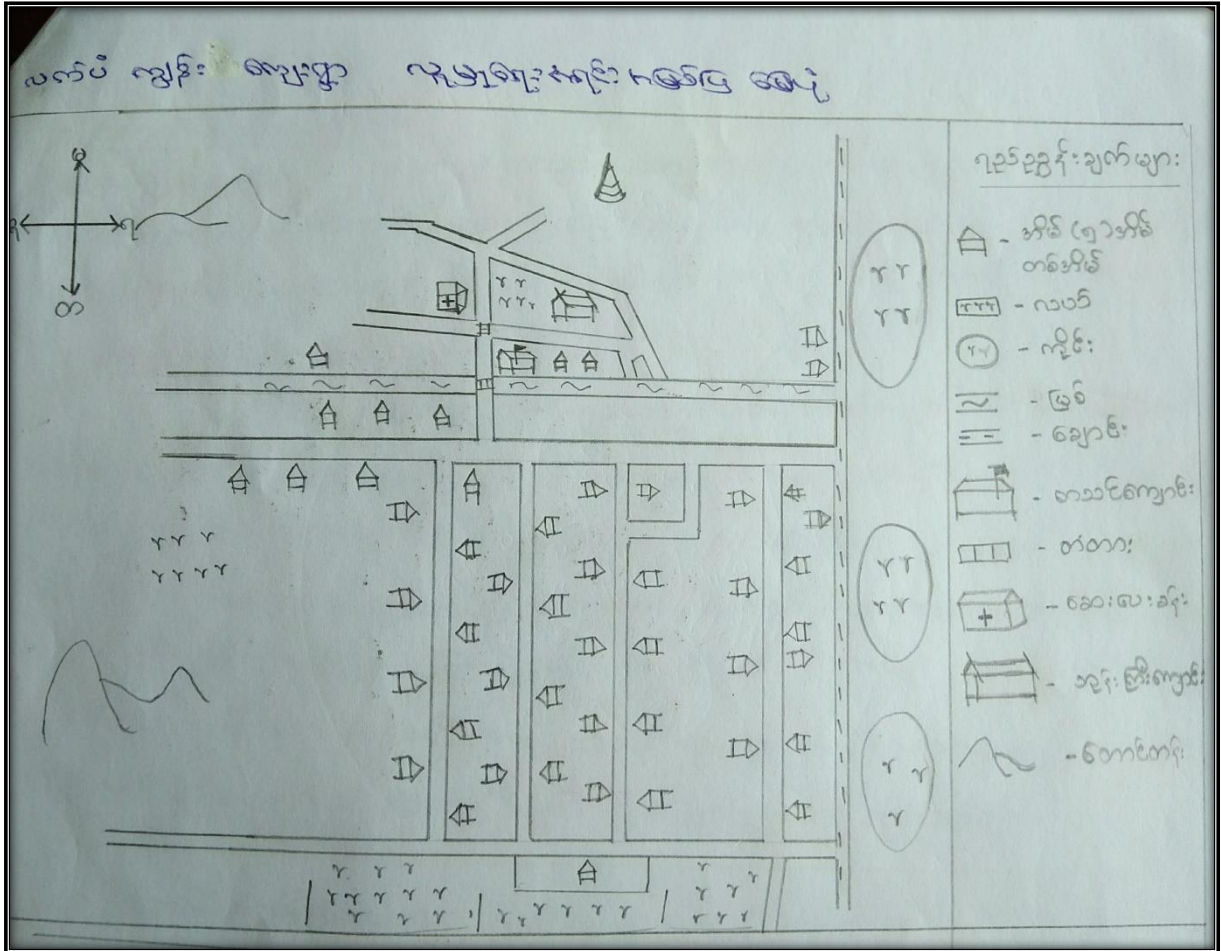 လက်ပံ ကျွန်း ကျေးရွာ လူမှုရေးအရင်းအမြစ်ပြ မြေပုံ
မ
န
ရ
တ
ရည်ညွှန်းချက်များ
အိမ် (၅) အိမ်
တစ်အိမ်
လယ်
ကိုင်း
မြစ်
ချောင်း
စာသင်ကျောင်း
တံတား
ဆေးပေးခန်း
ဘုန်းကြီးကျောင်း
တောင်တန်း